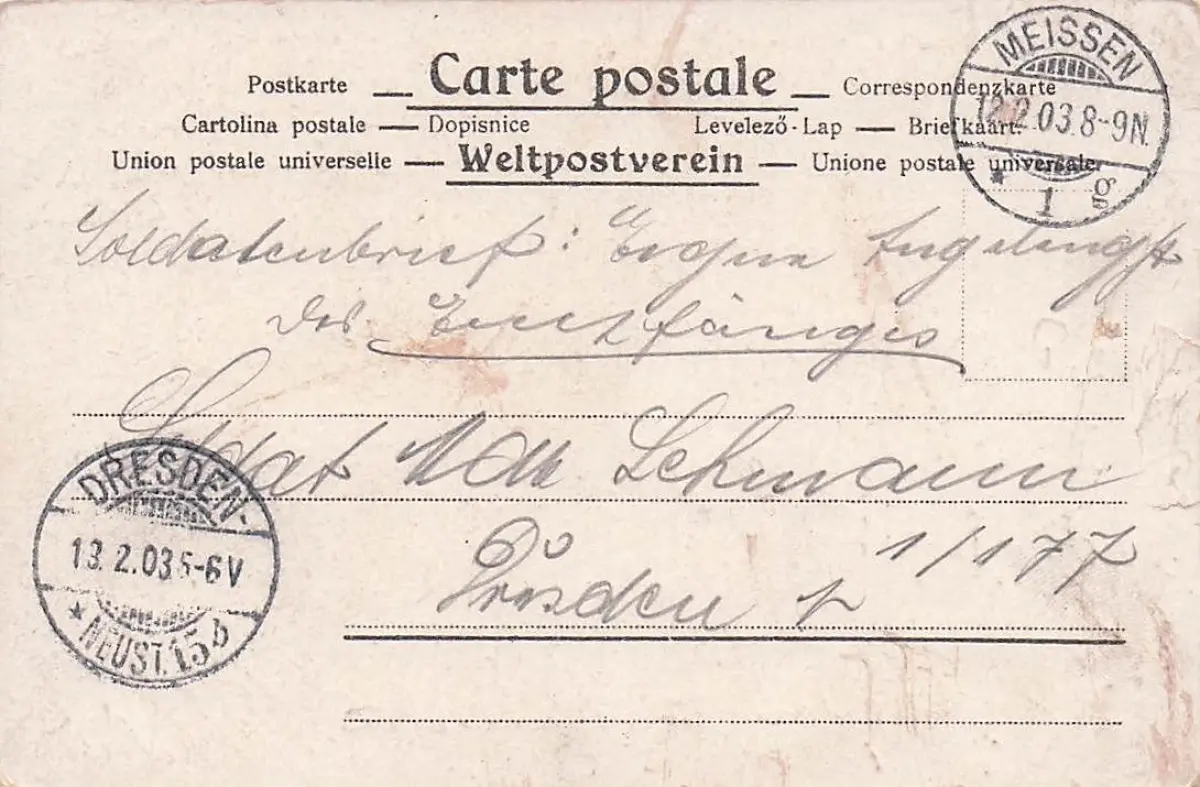 Carte postale
Postkarte — Correspondenzkarte
Cartolina postale — Dopisnice Levelező-Lap — Briefkaart.
Union postale universelle — Weltpostverein — Unione postale universale
MEISSEN
12.2.03.8-9N.
* 1 g
Soldatenbrief: Eigene Angeleght
des Empfängers
Soldat Lehmann
1/177
Dresden
DRESDEN-
13.2.03 5-6V
* NEUST. 15 b